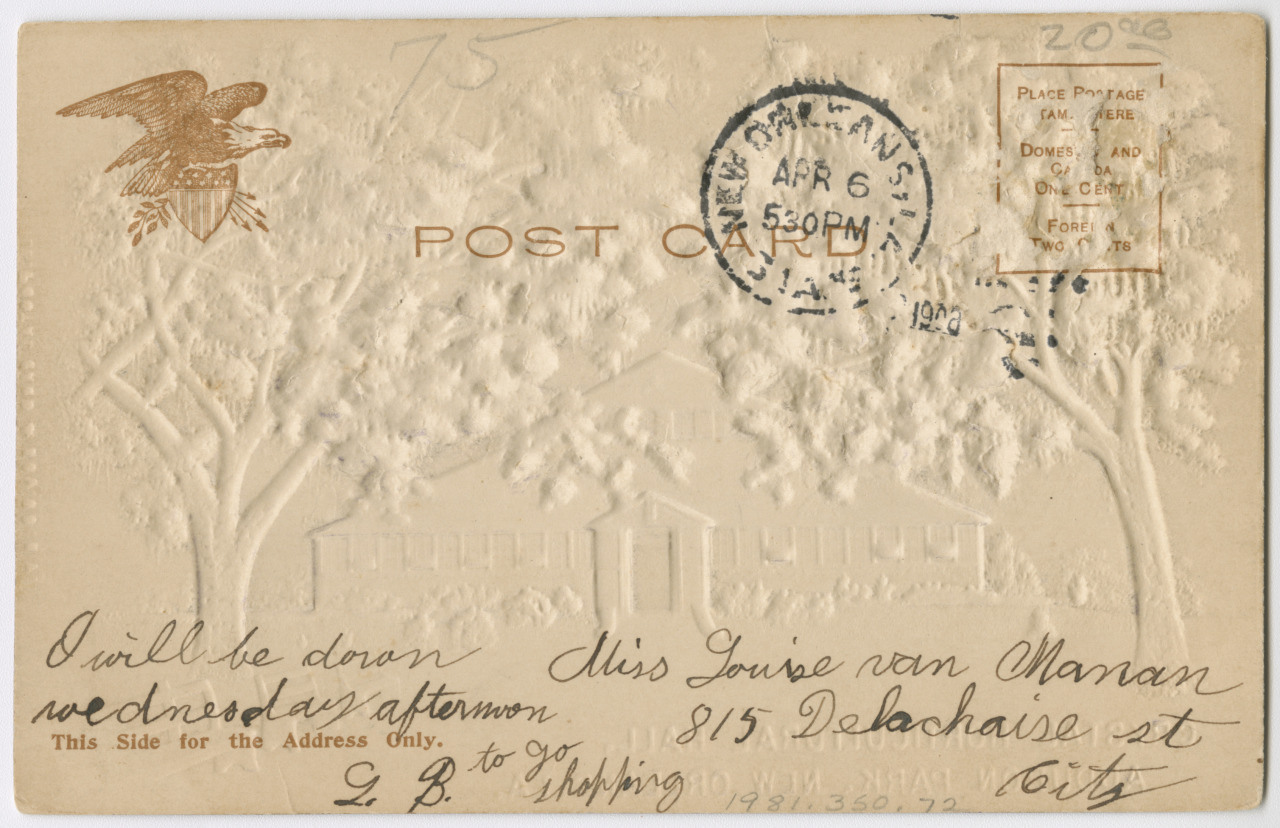 75
20
PLACE POSTAGE
DOMES AND
ONE CENT
TWO
POST CARD
NEW ORLEANS, LA
APR 6
530PM
I will be down
wednesday afternoon
to go
shopping
L. B.
This Side for the Address Only.
Miss Louise van Manan
815 Delachaise st
City
HORTICULTURAL HALL
PARK, NEW OR
1981.350.72